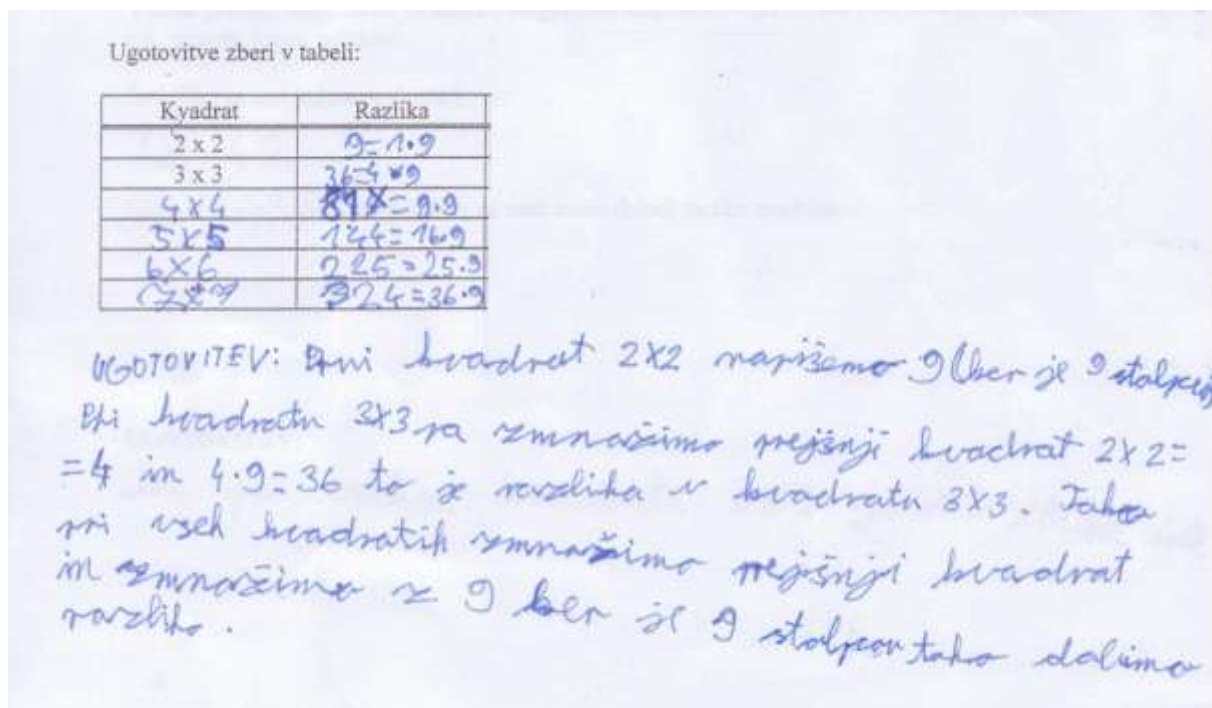 Ugotovitve zberi v tabeli:
Kvadrat Razlika
2 x 2 9=1•9
3 x 3 36=4•9
4x4 81=9•9
5x5 144=16•9
6x6 225=25•9
7x7 324=36•9
UGOTOVITEV: Prvi kvadrat 2x2 napišemo 9 ker je 9 stolpcev
Pri kvadratu 3x3 pa zmnožimo prejšnji kvadrat 2x2=
=4 in 4•9=36 to je razlika v kvadratu 3x3. Tako
pri vseh kvadratih zmnožimo prejšnji kvadrat
in zmnožimo z 9 ker je 9 stolpcov tako dobimo
razliko.